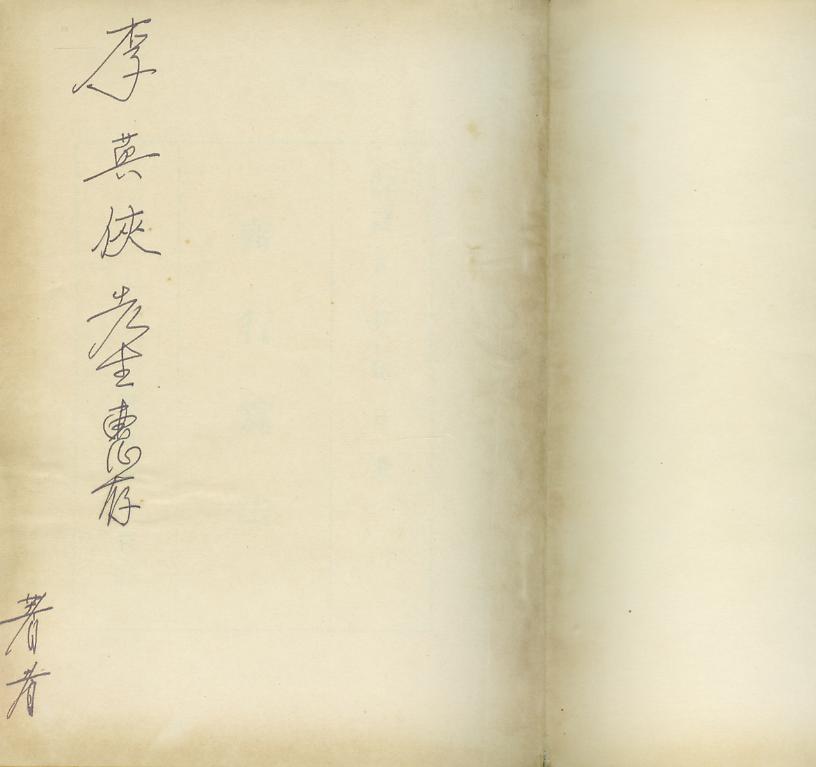 李英俠先生惠存
著者